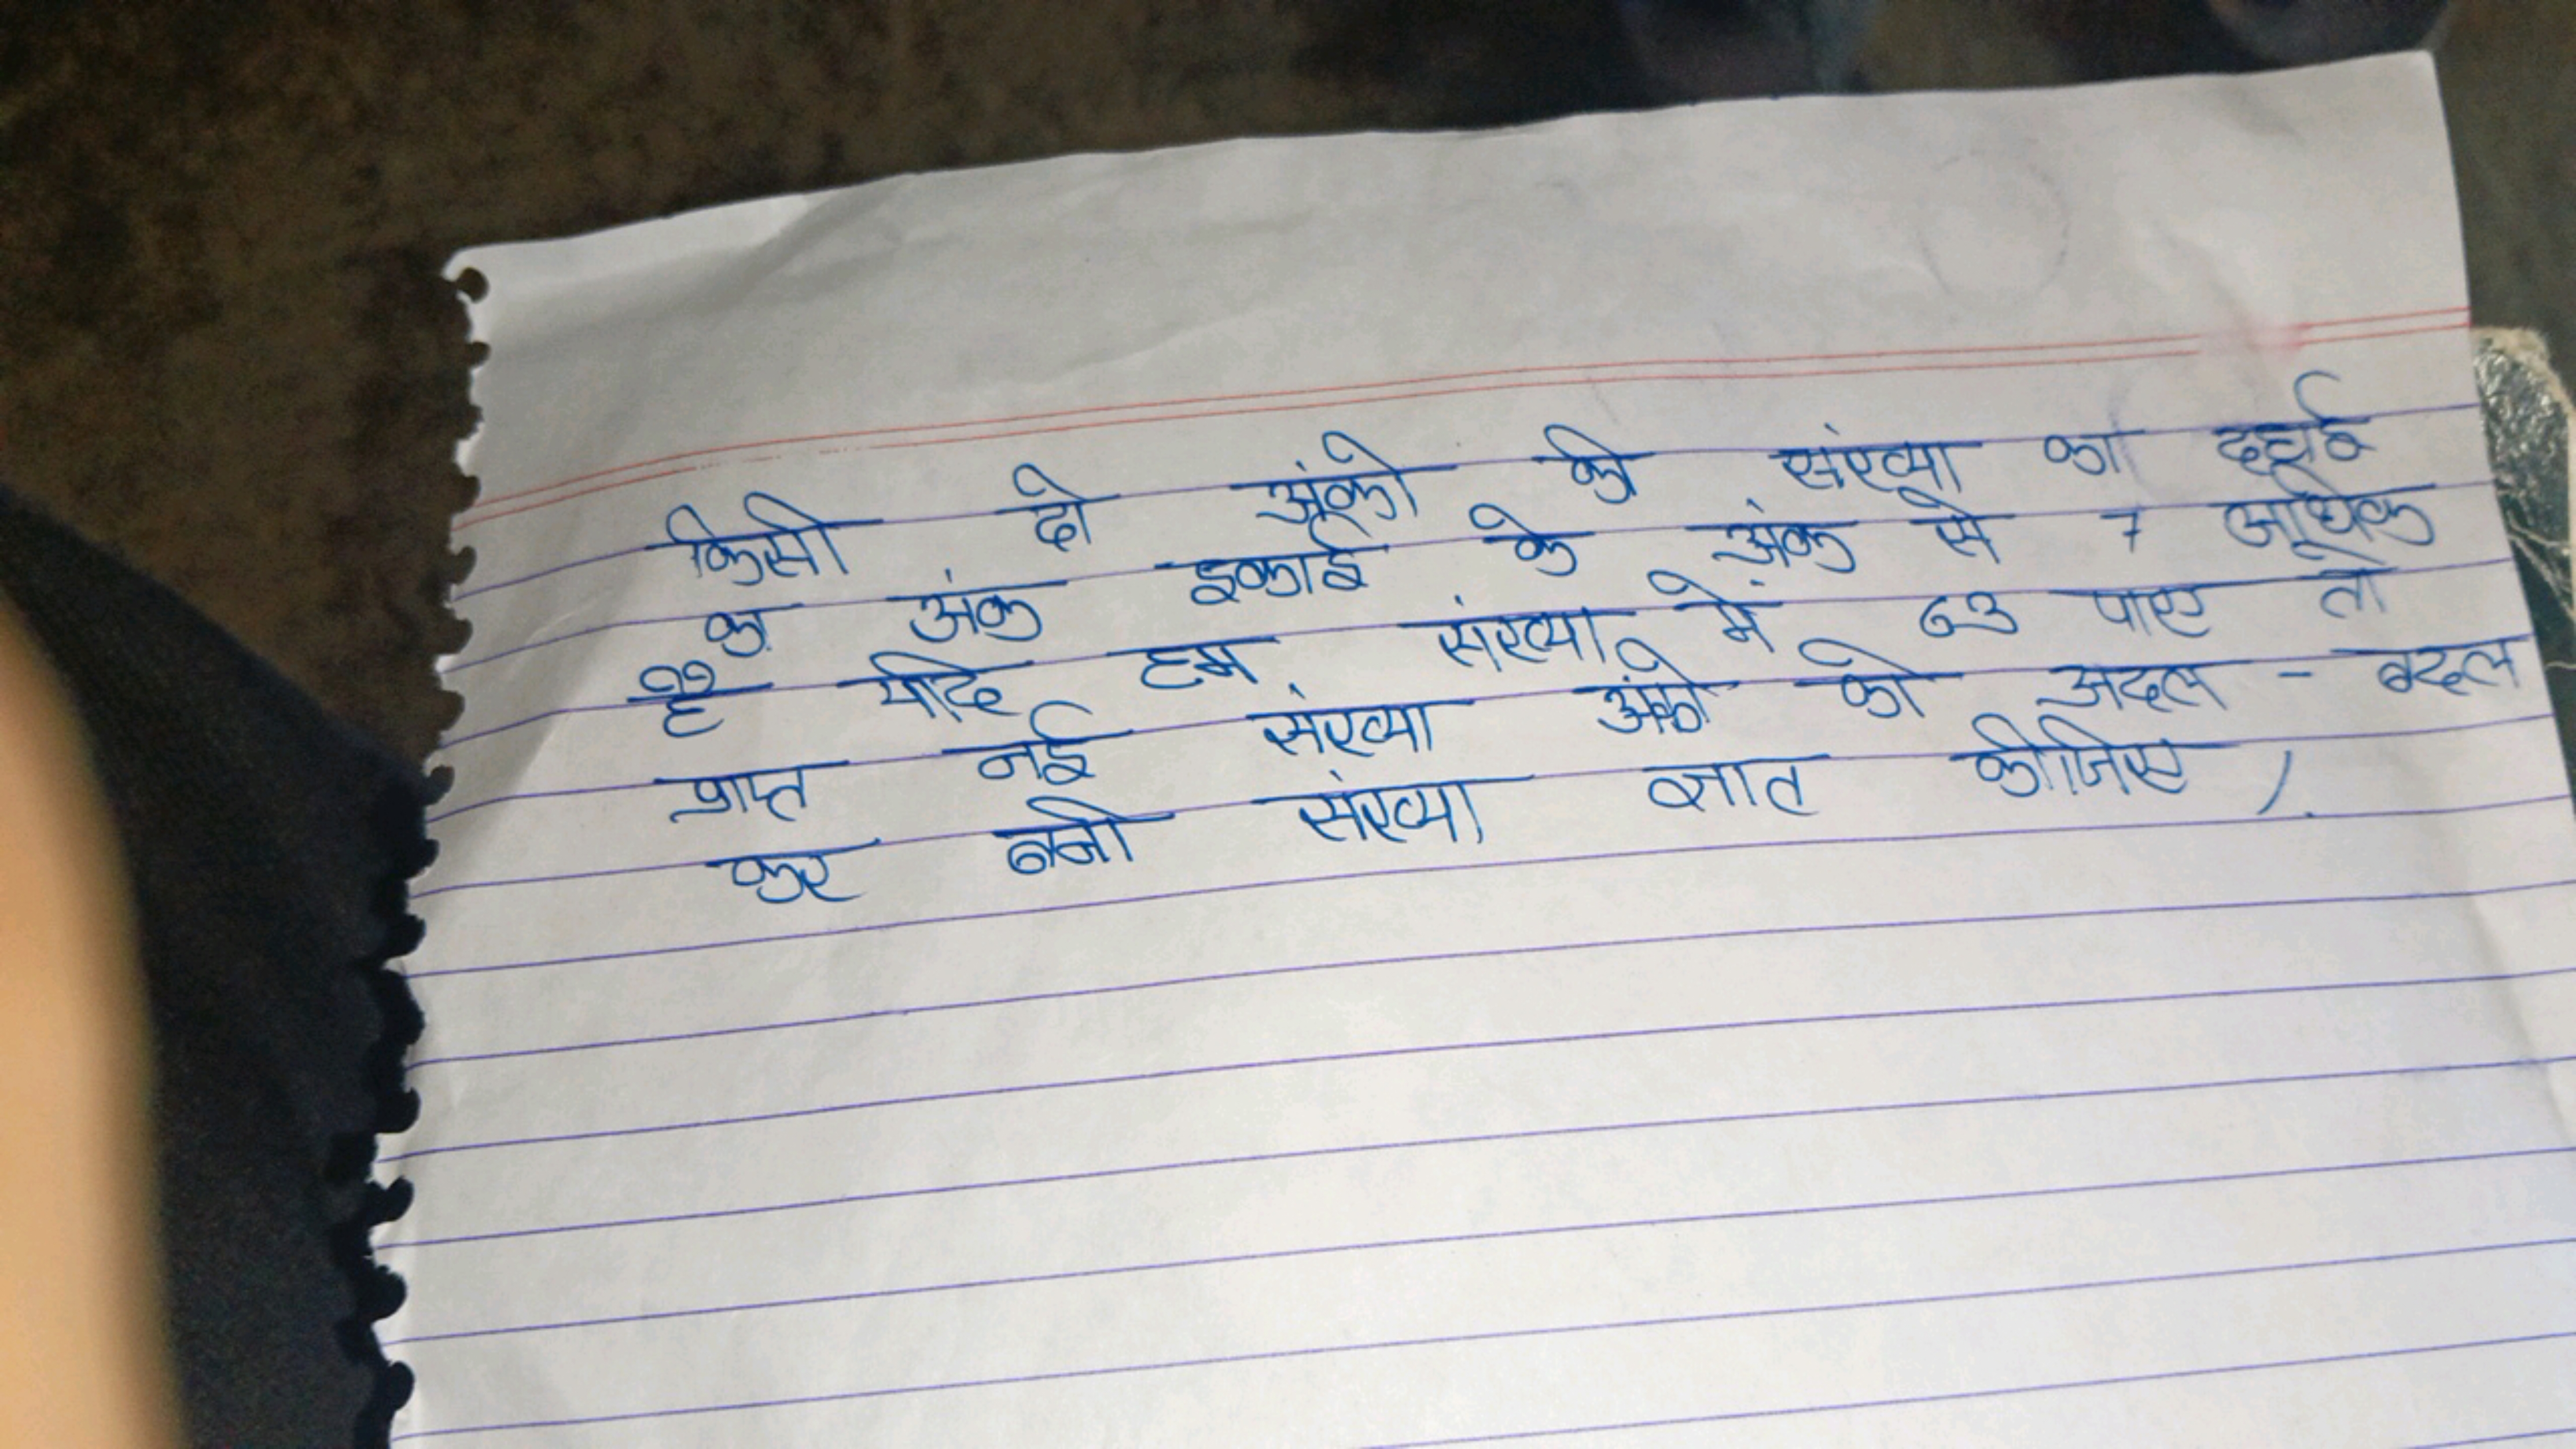 किसी दो अंको की संख्या का दहाई
का अंक इकाई के अंक से 7 अधिक
है यदि हम संख्या में 63 पाए तो
प्राप्त नई संख्या अंको को अदल - बदल
कर बनी संख्या ज्ञात कीजिए /.